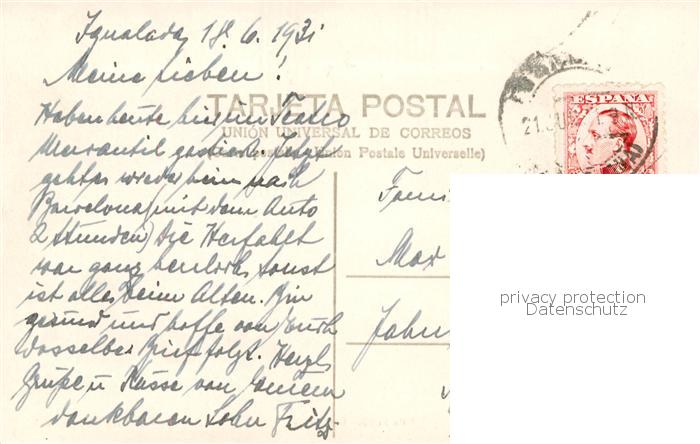 Igualada, 18. 6. 1931
Meine Lieben!
Haben heute hier im Teatro
Mercantil gastiert. Jetzt
geht es wieder heim nach
Barcelona (mit dem Auto
2 Stunden) Die Herfahrt
war ganz herrlich, sonst
ist alles beim Alten. Bin
gesund und hoffe von Euch
dasselbe. Brief folgt. Herzl.
Grüße u Küsse von Eurem
dankbaren Sohn Fritz
TARJETA POSTAL
UNIÓN UNIVERSAL DE CORREOS
Postale (Union Postale Universelle)
ESPAÑA
21.
Max
privacy protection
Datenschutz